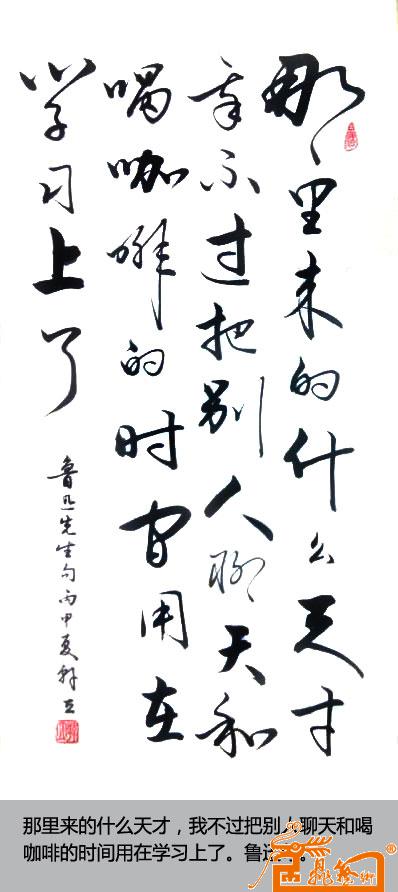 那里来的什么天才
我不过把别人聊天和
喝咖啡的时间用在
学习上了
鲁迅先生句丙申夏
那里来的什么天才，我不过把别人聊天和喝
咖啡的时间用在学习上了。鲁迅